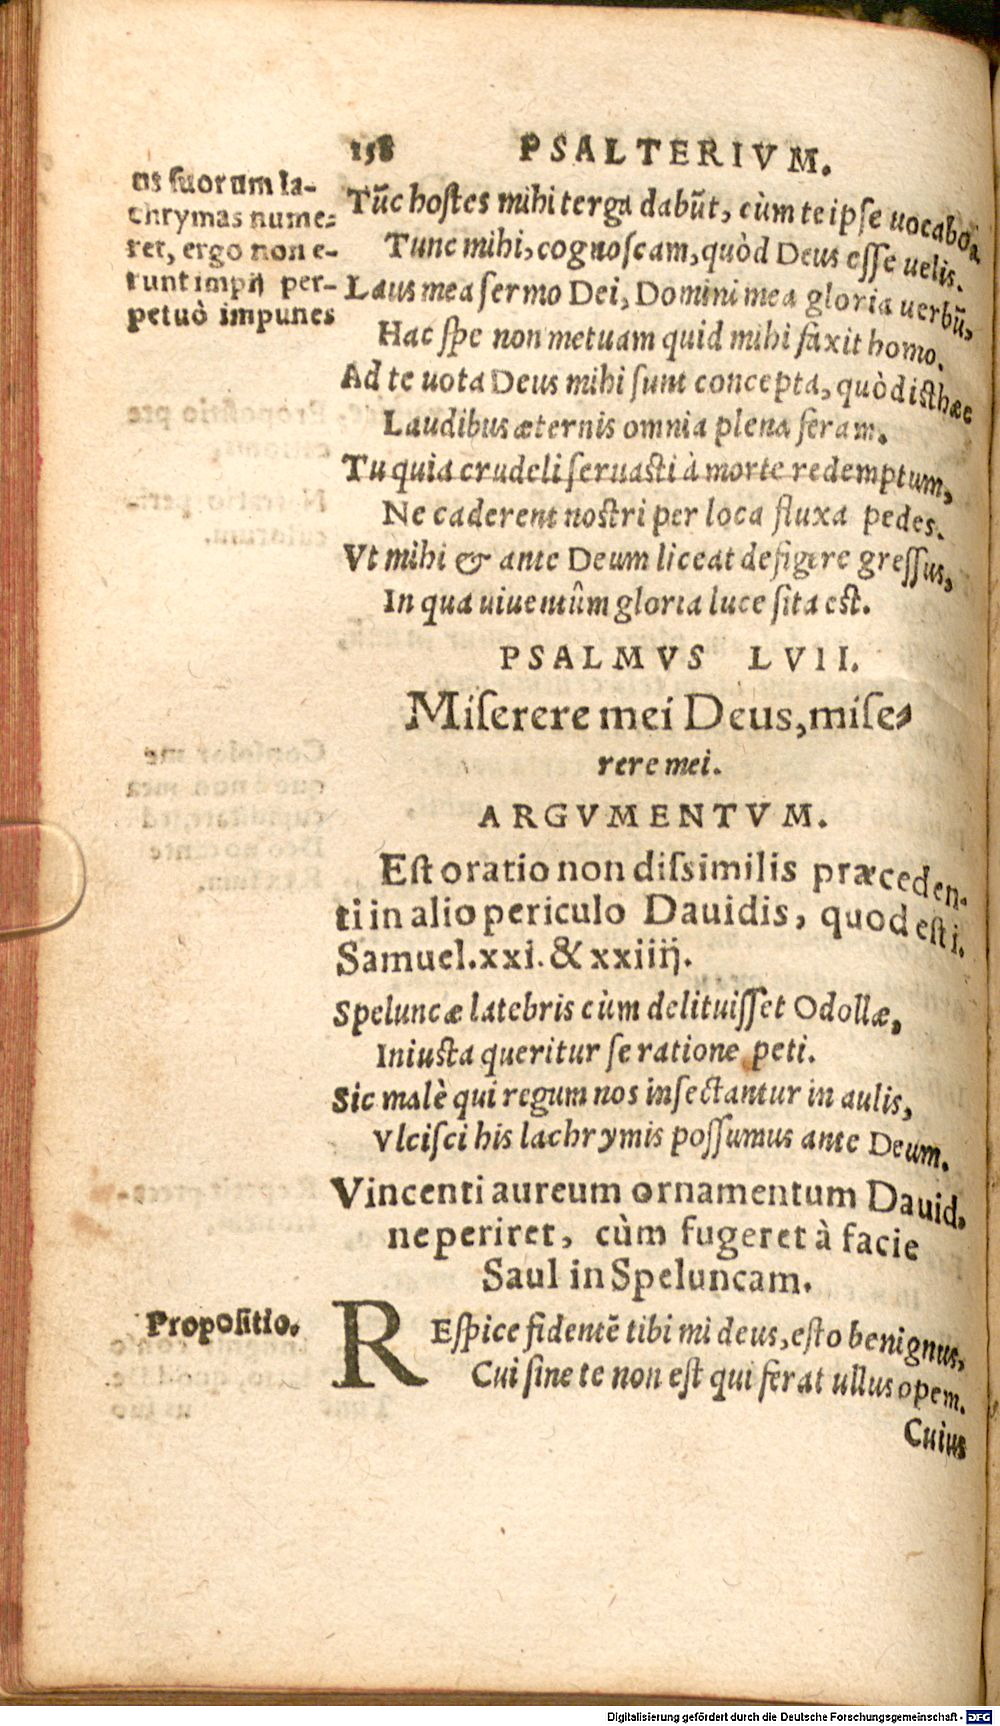 158 PSALTERIVM.
us suorum la-
chrymas nume-
ret, ergo non e-
runt impij per-
petuò impunes
Tũc hostes mihi terga dabũt, cùm te ipse uocabo.
Tunc mihi, cognoscam, quòd Deus esse uelis.
Laus mea sermo Dei, Domini mea gloria uerbũ,
Hac spe non metuam quid mihi faxit homo.
Ad te uota Deus mihi sunt concepta, quòd isthæc
Laudibus æternis omnia plena feram.
Tu quia crudeli seruasti à morte redemptum,
Ne caderent nostri per loca fluxa pedes.
Vt mihi & ante Deum liceat defigere gressus,
In qua uiuentûm gloria luce sita est.
PSALMVS LVII.
Miserere mei Deus, mise-
rere mei.
ARGVMENTVM.
Est oratio non dissimilis præceden-
ti in alio periculo Dauidis, quod est i.
Samuel. xxi. & xxiiij.
Speluncæ latebris cùm delituisset Odollæ,
Iniusta queritur se ratione peti.
Sic malè qui regum nos insectantur in aulis,
Vlcisci his lachrymis possumus ante Deum.
Vincenti aureum ornamentum Dauid,
ne periret, cùm fugeret à facie
Saul in Speluncam.
Propositio.
REspice fidentẽ tibi mi deus, esto benignus,
Cui sine te non est qui ferat ullus opem.
Cuius
Digitalisierung gefördert durch die Deutsche Forschungsgemeinschaft - DFG